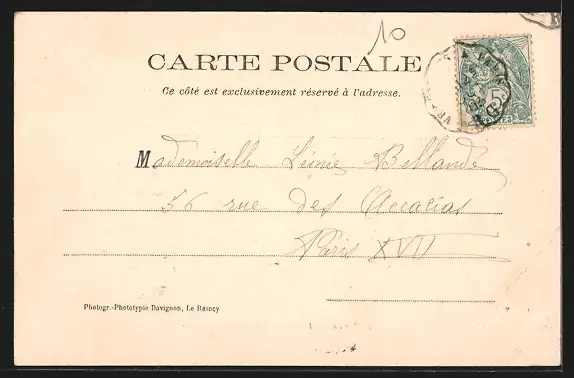 10
CARTE POSTALE
Ce côté est exclusivement réservé à l'adresse.
5
Mademoiselle Léonie Bellande
56 rue des Accacias
Paris XVII
Photogr.-Phototypie Davignon, Le Raincy